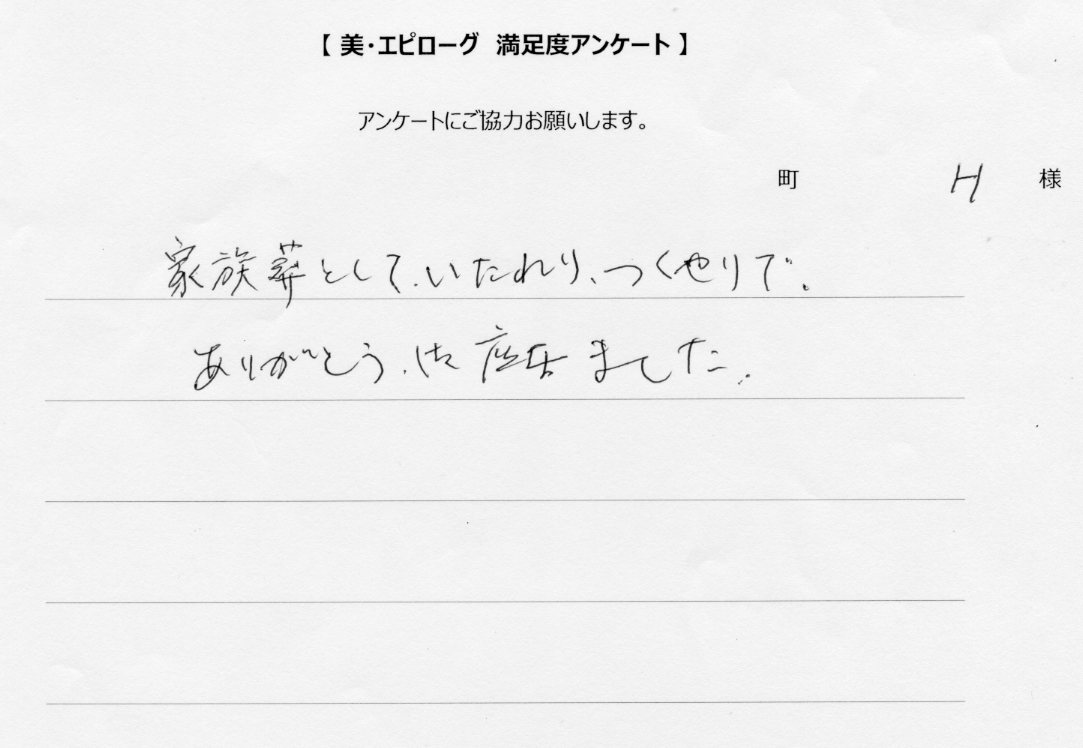 【 美・エピローグ 満足度アンケート 】
アンケートにご協力お願いします。
町 H 様
家族葬として、いたれり、つくせりで。
ありがとう、御座居ました。